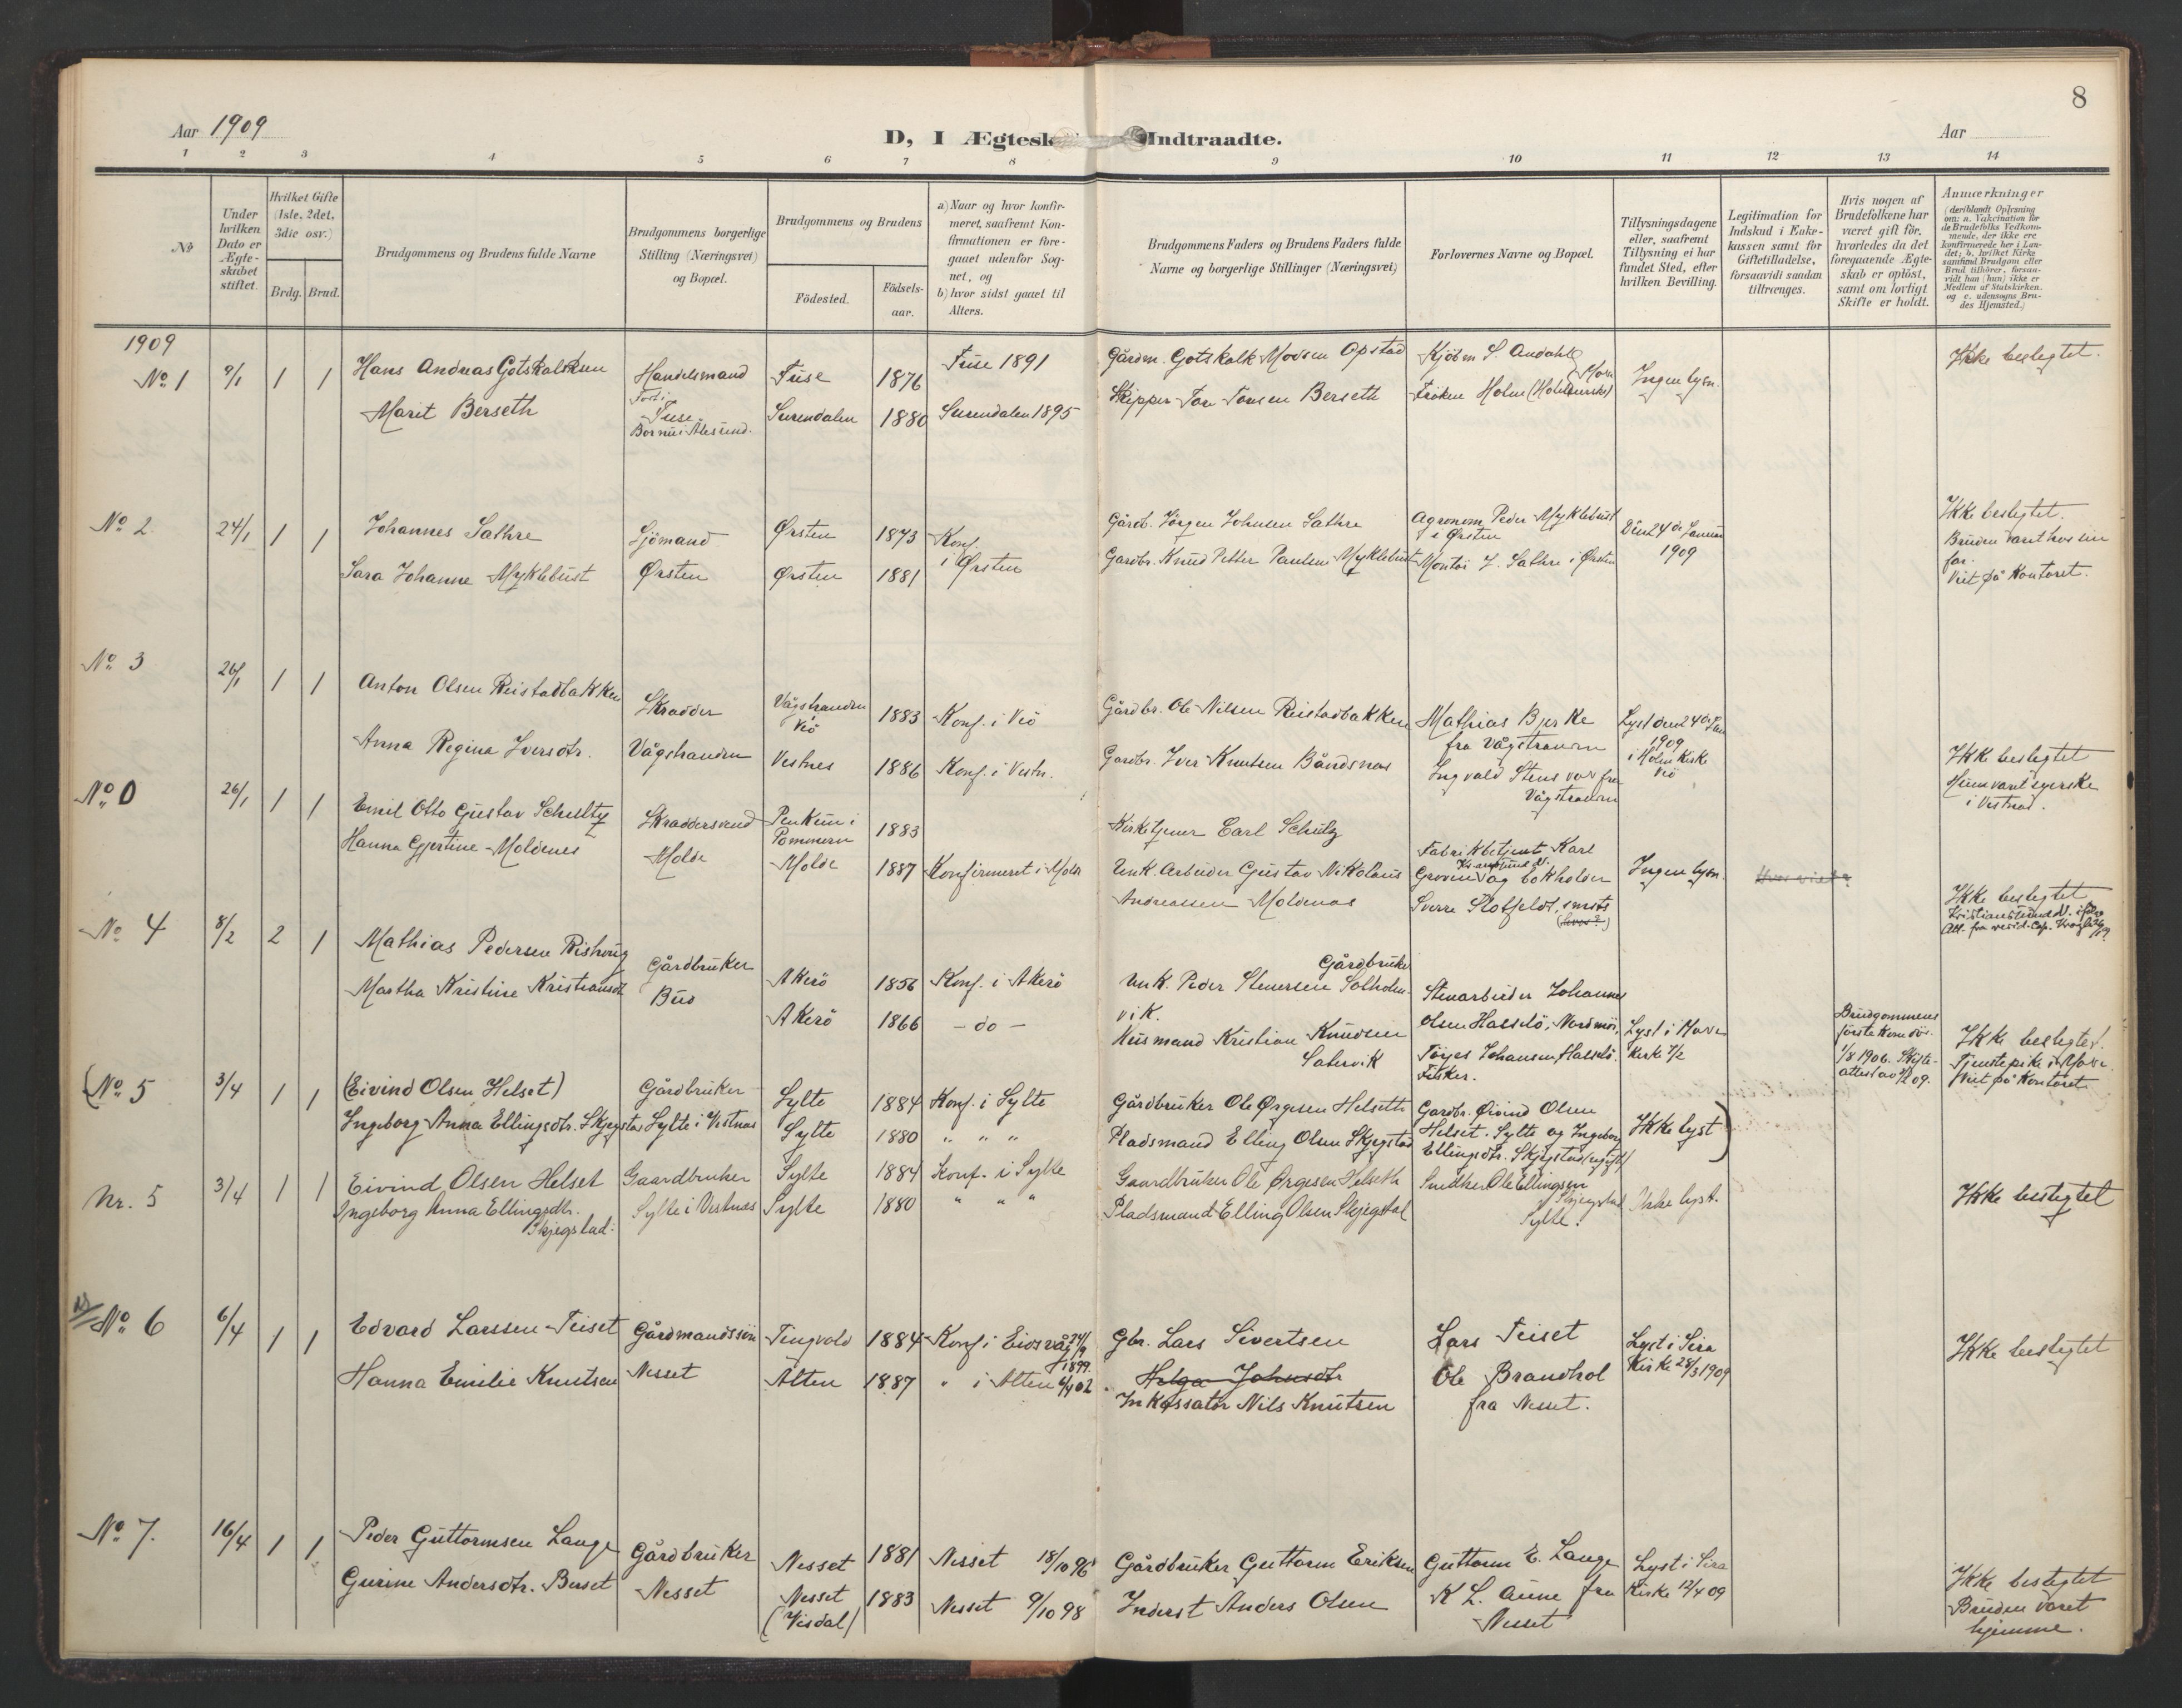 8
Aar 1909
D, I Ægtesk Indtraadte.
Aar
1 2 3 4 5 6 7 8 9 10 11 12 13 14
No
Under hvilken Dato er Ægteskabet stiftet.
Hvilket Gifte (1ste, 2det, 3die osv.)
Brdg. Brud.
Brudgommens og Brudens fulde Navne
Brudgommens borgerlige Stilling (Næringsvei) og Bopæl.
Brudgommens og Brudens
Födested.
Födsels-aar.
a) Naar og hvor konfirmeret, saafremt Konfirmationen er foregaaet udenfor Sognet, og
b) hvor sidst gaaet til Alters.
Brudgommens Faders og Brudens Faders fulde Navne og borgerlige Stillinger (Næringsvei)
Forlovernes Navne og Bopæl.
Tillysningsdagene eller, saafremt Tillysning ei har fundet Sted, efter hvilken Bevilling.
Legitimation for Indskud i Enkekassen samt for Giftetilladelse, forsaavidt saadan tiltrænges.
Hvis nogen af Brudefolkene har været gift för, hvorledes da det foregaaende Ægteskab er oplöst, samt om lovligt Skifte er holdt.
Anmærkninger
(deriblandt Oplysning om: a. Vakcination for de Brudefolks Vedkommende, der ikke ere konfirmerede her i Landet; b. hvilket Kirkesamfund Brudgom eller Brud tilhörer, forsaavidt han (hun) ikke er Medlem af Statskirken. og c. udensogns Brudes Hjemsted.)
1909
No 1 9/1 1 1 Hans Andreas Gotskalksen Handelsmand Fuse 1876 Fuse 1891 Gårdm. Gotskalk Monsen Opstad Kjöbm S. Andahl Ingen lysn. Ikke beslegtet.
Marit Berseth Fuse Surendalen 1880 Surendalen 1895 Skipper Tore Toresen Berseth Fröken Holm
No 2 24/1 1 1 Johannes Sathre Sjömand Ørsten 1873 Konf. i Ørsten Gårdb. Jörgen Johnsen Sathre Agronom Peder Myklebust i Ørsten Den 24de Januar 1909 Ikke beslegtet.
Sara Johanne Myklebust Ørsten Ørsten 1881 Gardbr. Knud Petter Paulsen Myklebust Montör J. Sathre i Ørsten
Bruden været hos sin far.
Viet på Kontoret.
No 3 26/1 1 1 Anton Olsen Reistadbakken Skradder Vågstranden Veö 1883 Konf. i Veö Gårdbr. Ole Nilsen Reistadbakken Mathias Bjerke fra Vågstranden Lyst den 24de Jan 1909 i Holm Kirke Veö
Anna Regina Iversdtr. Vågstranden Vestnes 1886 Konf. i Vestn. Gardbr. Iver Knutsen Båndsnes Ingvald Stens fra Vågstranden
Ikke beslegtet
Hun været syerske i Vestnes.
No 0 26/1 1 1 Emil Otto Gustav Schultz Skraddersvend Penkun i Pommern 1883 Kirketjener Carl Schulz Fabrikbetjent Karl
Hanna Gjertine Moldenes Molde Molde 1887 Konfirmeret i Molde Unk. Arbeider Gustav Nikolaus Andreassen Moldenes og bokholder Sverre Slotfeldt, smsts Ingen lysn.
Ikke beslegtet
No 4 8/2 2 1 Mathias Pedersen Rishaug Gårdbruker Akerö 1856 Konf. i Akerö Unk. Gårdbruker Peder Stenersen Solholmvik. Stenarbeider Johannes Olsen Harselö, Nordmör,
Martha Kristine Kristiansdt Bud Akerö 1866 - do - Husmand Kristian Knudsen Satervik Töyes Johansen Harselö. Fisker. Lyst i Kirke 7/2
Brudgommens förste kone dös. 1/8 1906. Skifteattest av 7/2 09.
Ikke beslegtet.
Tjenestepike
Viet på Kontoret.
(No 5 3/4 1 1 (Eivind Olsen Helset) Gårdbruker Sylte 1884 Konf. i Sylte Gårdbruker Ole Ørgesen Helseth Gardbr. Øivind Olsen Helset. Sylte og Ingeborg Ellingsdtr. Skjegstad (ugift) Ikke lyst )
Ingeborg Anna Ellingsdtr. Skjegstad Sylte i Vestnes Sylte 1880 " " " Pladsmand Elling Olsen Skjegstad
Nr. 5 3/4 1 1 Eivind Olsen Helset Gaardbruker Sylte 1884 Konf. i Sylte Gaardbruker Ole Ørgesen Helseth Snedker Ole Ellingsen Skjegstad Sylte. Ikke lyst. Ikke beslegtet
Ingeborg Anna Ellingsdtr. Skjegstad. Sylte i Vestnes Sylte 1880 " " " Pladsmand Elling Olsen Skjegstad
No 6 6/4 1 1 Edvard Larssen Teiset Gårdmandssön Tingvold 1884 Konf. i Eidsvåg 24/9 1899. Gbr. Lars Sivertsen Lars Teiset Lyst i Sira Kirke 28/3 1909 Ikke beslegtet
Hanna Emilie Knutsen Nesset Alten 1887 " i Alten 6/4 02 Helga Johnsdtr Ole Brandhol fra Nesset.
Inkassator Nils Knutsen
No 7. 16/4 1 1 Peder Guttormsen Lange Gårdbruker Nesset 1881 Nesset 18/10 96 Gårdbruker Guttorm Eriksen Guttorm E. Lange Lyst i Sira Kirke 12/4 09
Gurine Andersdtr. Buset Nesset Nesset (Visdal) 1883 Nesset 9/10 98 Inderst Anders Olsen K L. Aune fra Nesset
Ikke beslegtet
Bruden været hjemme.